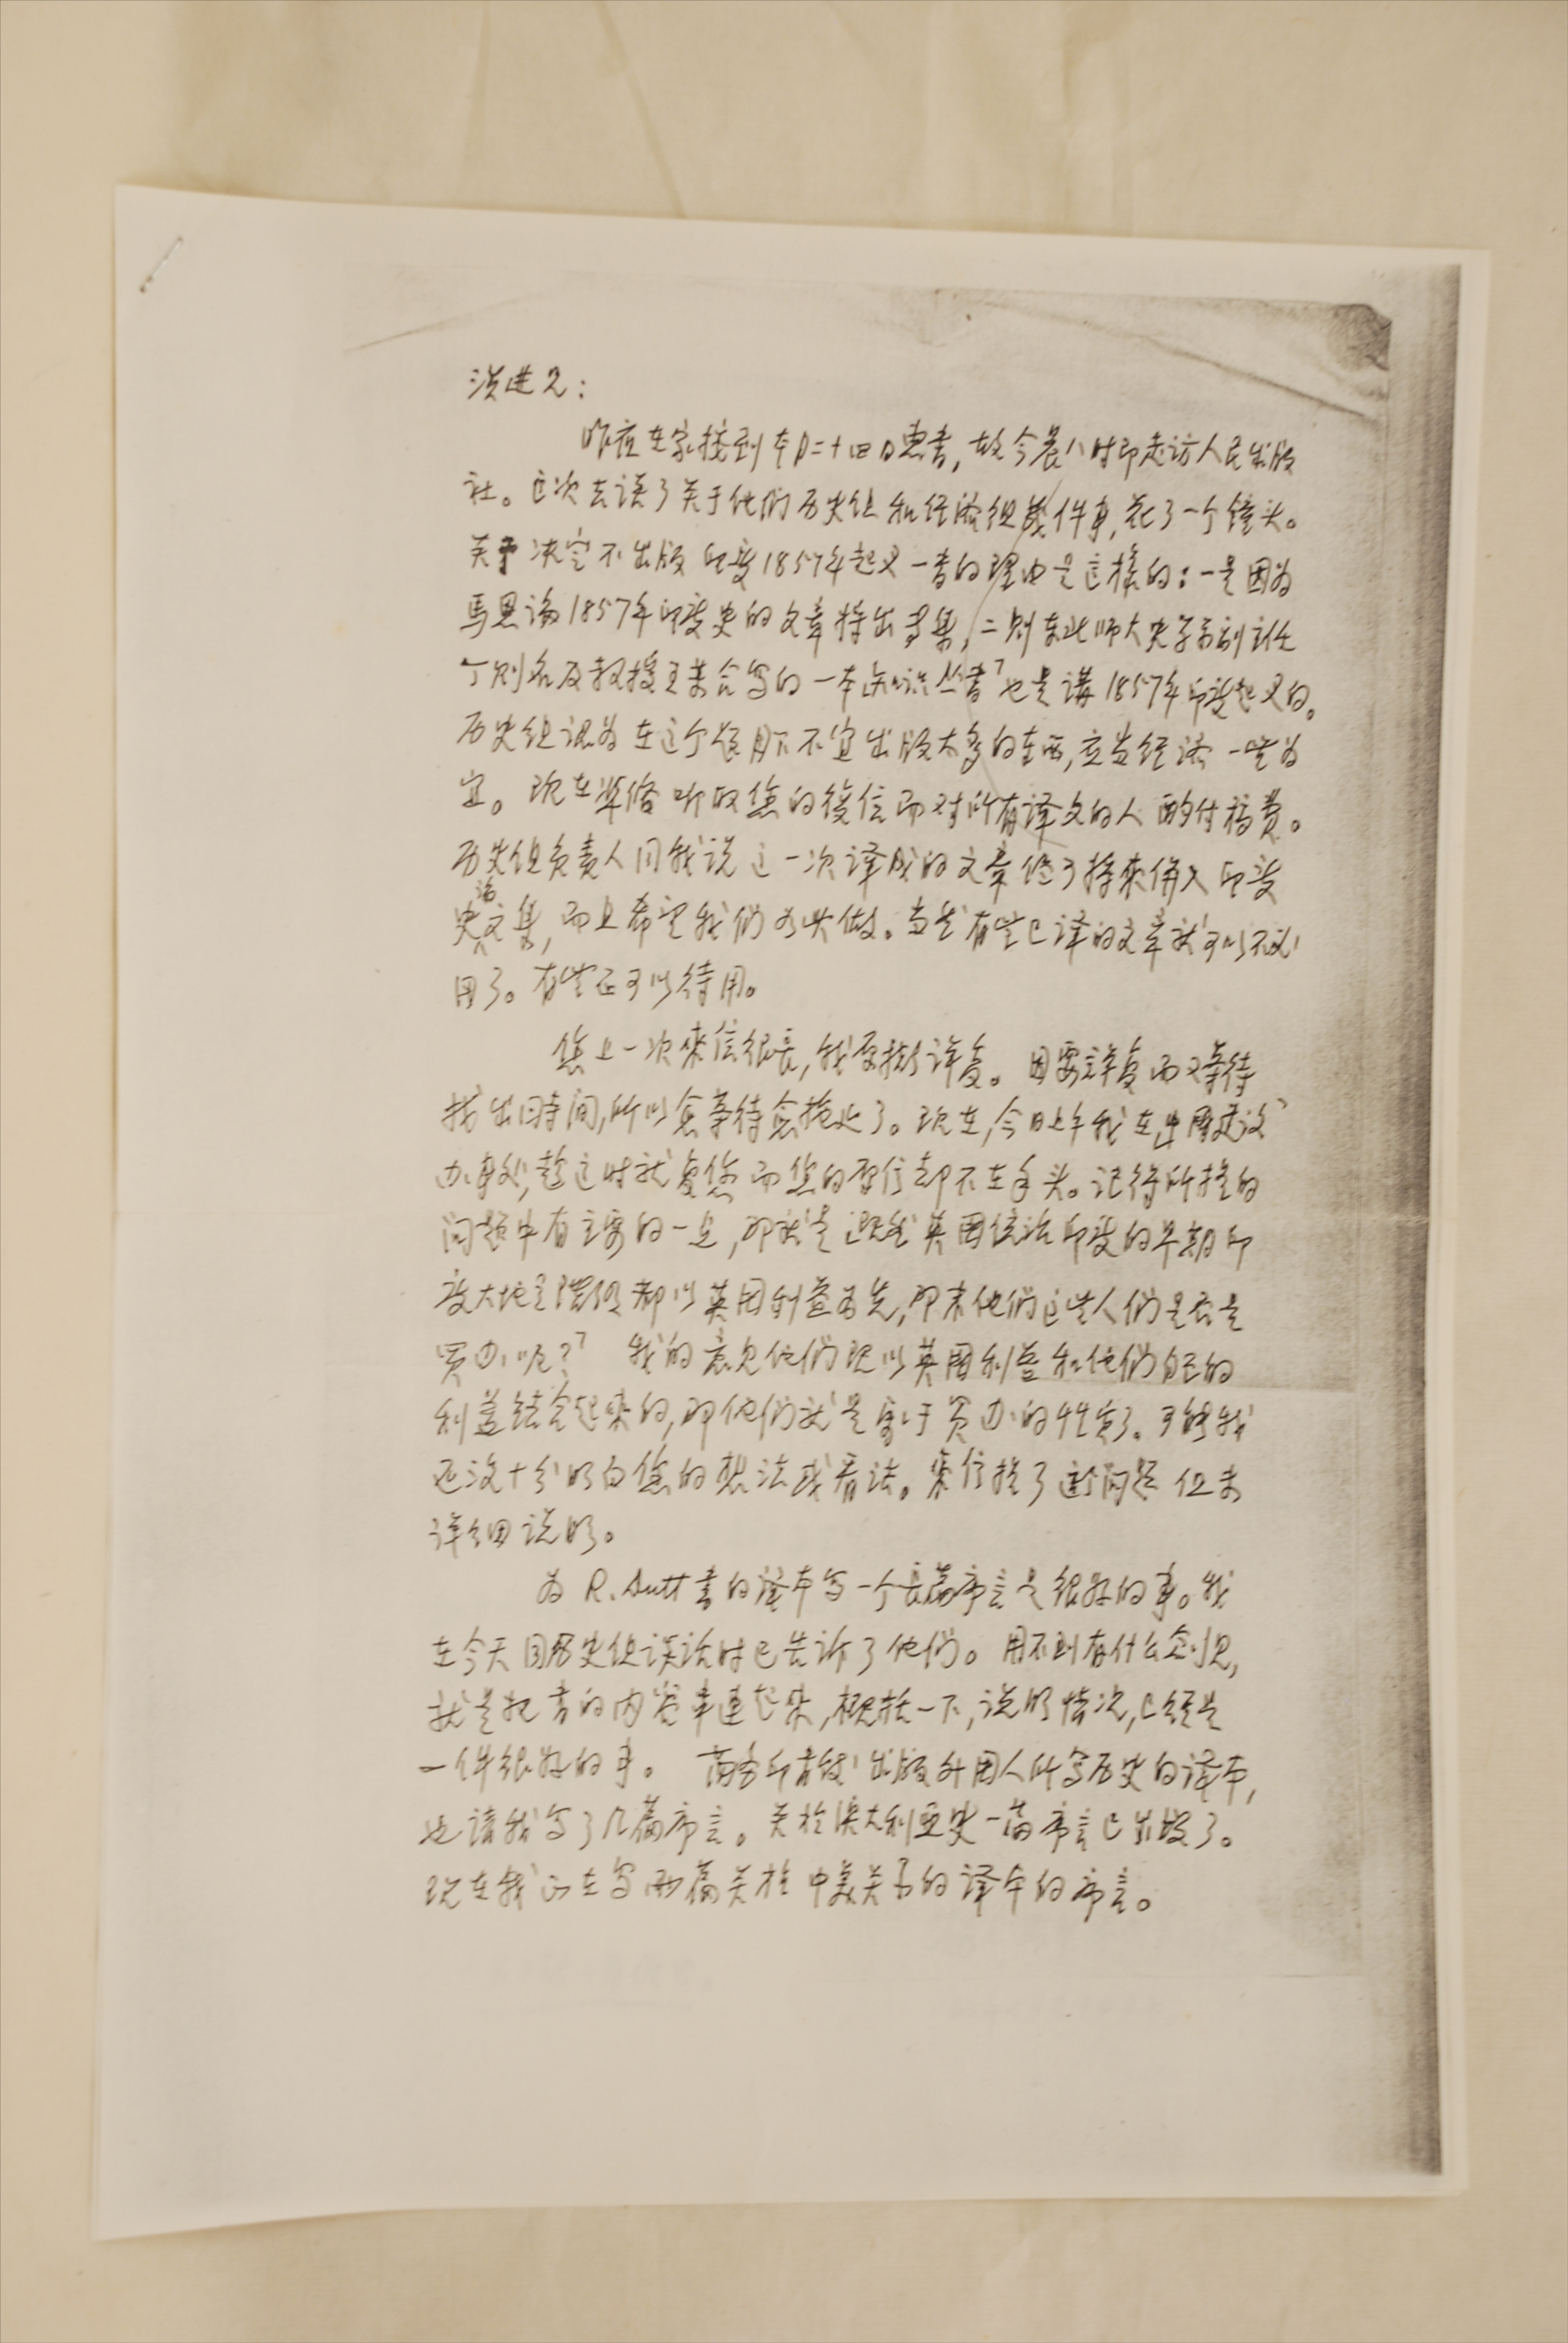 汉进兄:
昨夜在家接到本月二十四日惠书,故今晨八时即走访人民出版
社。这次去谈了关于他们历史组和经济组几件事,花了一个钟头。
关于决定不出版印度1857年起义一书的理由是这样的:一是因为
马恩论1857年印度史的文章将出专集,二则东北师大史学系副主任
丁则民及教授王某合写的一本知识丛书也是讲1857年印度起义的。
历史组认为在这个题目下不宜出版太多的东西,应当经济一些为
宜。现在准备听取您的复信而对所有译文的人酌付稿费。
历史组负责人同我说这一次译成的文章仍可将来併入印度
史论文集,而且希望我们如此做。当然有些已译的文章就可以不必
用了。有些正可以待用。
您上一次来信很长,我要想详复。因要详复而又等待
找出时间,所以愈等待愈拖延了。现在,今日上午我在
办事处,趁这时就复您而您的原信却不在手头。记得所提的
问题中有主要的一点,那就是既然英国统治印度的早期印
度大地主阶级都以英国利益为先,那末他们这些人们是否是
买办呢?我的意见他们既以英国利益和他们自己的
利益结合起来的,那他们就是属于买办的性质了。可能我
还没十分明白您的想法或看法。来信提了这个问题但未
详细说明。
为 R. Dutt 书的译本写一个长篇序言是很好的事。我
在今天同历史组谈话时已告诉了他们。用不到有什么全,
就是把书的内容串连起来,概括一下,说明情况,已经是
一件很好的事。商务印书馆出版外国人所写历史的译本,
也请我写了几篇序言。关于澳大利亚史一篇序言已出版了。
现在我正在写两篇关于中美关系的译本的序言。